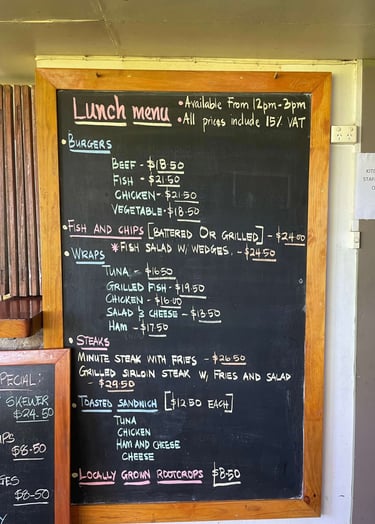 Lunch menu
• Available From 12pm-3pm
• All prices include 15% VAT
• BURGERS
BEEF - $18.50
FISH - $21.50
CHICKEN - $21.50
VEGETABLE - $18.50
• FISH AND CHIPS [BATERED OR GRILLED] - $24.00
* FISH SALAD W/ WEDGES. - $24.50
• WRAPS
TUNA - $16.50
GRILLED FISH - $19.50
CHICKEN - $16.00
SALAD & CHEESE - $13.50
HAM - $17.50
• STEAKS
MINUTE STEAK WITH FRIES - $26.50
GRILLED SIRLOIN STEAK W/ FRIES AND SALAD
- $29.50
• TOASTED SANDWICH [$12.50 EACH]
TUNA
CHICKEN
HAM AND CHEESE
CHEESE
• LOCALLY GROWN ROOTCROPS $8.50
SPECIAL:
SKEWER
$24.50
$8.50
$8.50